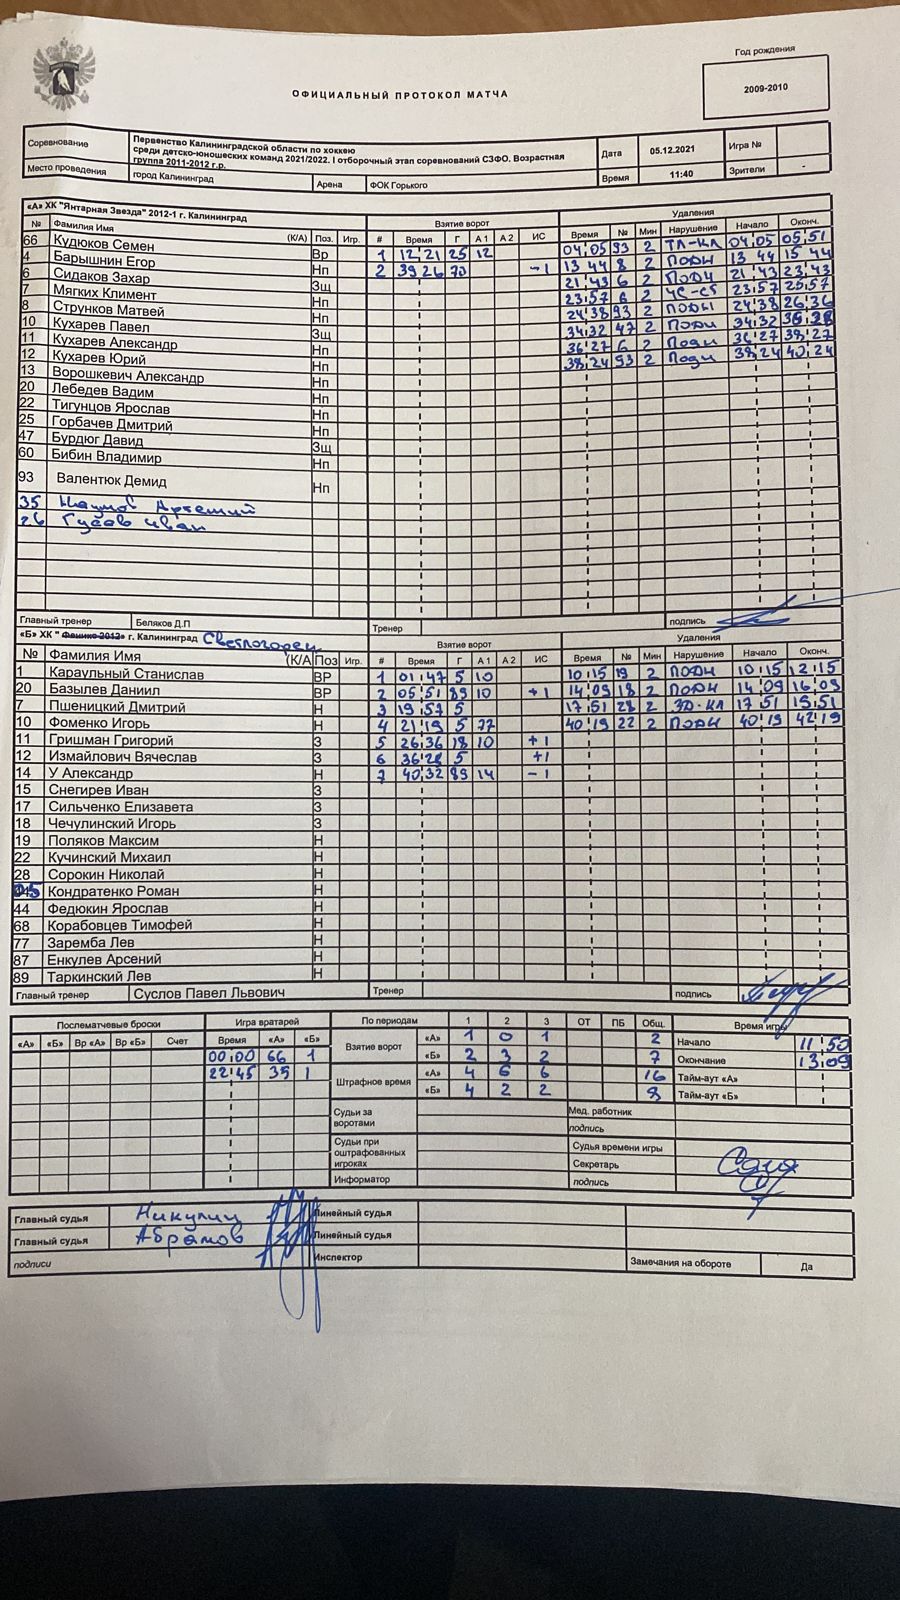 Год рождения
2009-2010
ОФИЦИАЛЬНЫЙ ПРОТОКОЛ МАТЧА
Соревнование Первенство Калининградской области по хоккею среди детско-юношеских команд 2021/2022. I отборочный этап соревнований СЗФО. Возрастная группа 2011-2012 г.р. Дата 05.12.2021 Игра №
Место проведения город Калининград Арена ФОК Горького Время 11:40 Зрители -
«А» ХК "Янтарная Звезда" 2012-1 г. Калининград Взятие ворот Удаления
№ Фамилия Имя (К/А) Поз. Игр. # Время Г А 1 А 2 ИС Время № Мин Нарушение Начало Оконч.
66 Кудюков Семен Вр 1 12 21 25 12 04 05 93 2 ТЛ-КЛ 04 05 05 51
4 Барышнин Егор Нп 2 39 26 70 -1 13 44 8 2 ПОДН 13 44 15 44
6 Сидаков Захар Зщ 21 43 6 2 ПОДН 21 43 23 43
7 Мягких Климент Нп 23 57 6 2 ЧС-СТ 23 57 25 57
8 Струнков Матвей Нп 24 38 93 2 ПОДН 24 38 26 36
10 Кухарев Павел Зщ 34 32 47 2 ПОДН 34 32 36 28
11 Кухарев Александр Нп 36 27 6 2 Подн 36 27 38 27
12 Кухарев Юрий Нп 38 24 93 2 Подн 38 24 40 24
13 Ворошкевич Александр Нп
20 Лебедев Вадим Нп
22 Тигунцов Ярослав Нп
25 Горбачев Дмитрий Нп
47 Бурдюг Давид Зщ
60 Бибин Владимир Нп
93 Валентюк Демид Нп
35 Наумов Артемий
26 Гусев Иван
Главный тренер Беляков Д.П Тренер подпись
«Б» ХК " Феникс 2012» г. Калининград Светлогорец Взятие ворот Удаления
№ Фамилия Имя (К/А) Поз Игр. # Время Г А 1 А 2 ИС Время № Мин Нарушение Начало Оконч.
1 Караульный Станислав ВР 1 01 47 5 10 10 15 19 2 ПОДН 10 15 12 15
20 Базылев Даниил ВР 2 05 51 89 10 +1 14 09 18 2 ПОДН 14 09 16 09
7 Пшеницкий Дмитрий Н 3 19 57 5 17 51 28 2 ЗД-КЛ 17 51 19 51
10 Фоменко Игорь Н 4 21 19 5 77 40 19 22 2 ПОДН 40 19 42 19
11 Гришман Григорий З 5 26 36 18 10 +1
12 Измайлович Вячеслав З 6 36 28 5 +1
14 У Александр Н 7 40 32 89 14 -1
15 Снегирев Иван З
17 Сильченко Елизавета З
18 Чечулинский Игорь З
19 Поляков Максим Н
22 Кучинский Михаил Н
28 Сорокин Николай Н
Кондратенко Роман Н
44 Федюкин Ярослав Н
68 Корабовцев Тимофей Н
77 Заремба Лев Н
87 Енкулев Арсений Н
89 Таркинский Лев Н
Главный тренер Суслов Павел Львович Тренер подпись
Послематчевые броски Игра вратарей По периодам 1 2 3 ОТ ПБ Общ. Время игры
«А» «Б» Вр «А» Вр «Б» Счет Время «А» «Б» Взятие ворот «А» 1 0 1 2 Начало 11 50
00:00 66 1 «Б» 2 3 2 7 Окончание 13 09
22 45 35 1 Штрафное время «А» 4 6 6 16 Тайм-аут «А»
«Б» 4 2 2 8 Тайм-аут «Б»
Судьи за воротами Мед. работник
подпись
Судьи при оштрафованных игроках Судья времени игры
Секретарь
Информатор подпись
Главный судья Никулин Линейный судья
Главный судья Абрамов Линейный судья
подписи Инспектор Замечания на обороте Да